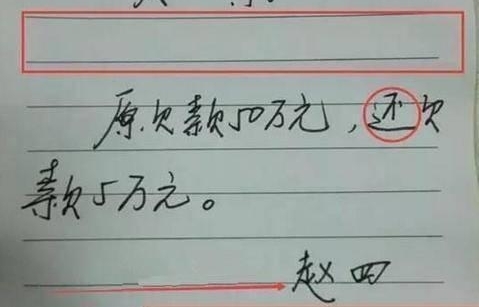 原欠款50万元，还欠
款5万元。
赵四